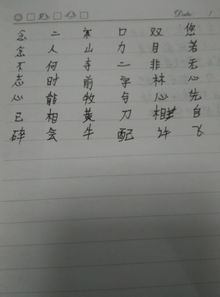 Date 1
念 二 常 口 双 您
念 人 山 力 目 若
不 何 寺 二 非 无
志 时 前 学 林 心
心 能 牧 与 心 先
已 相 黄 刀 相 自
碎 会 牛 配 许 飞